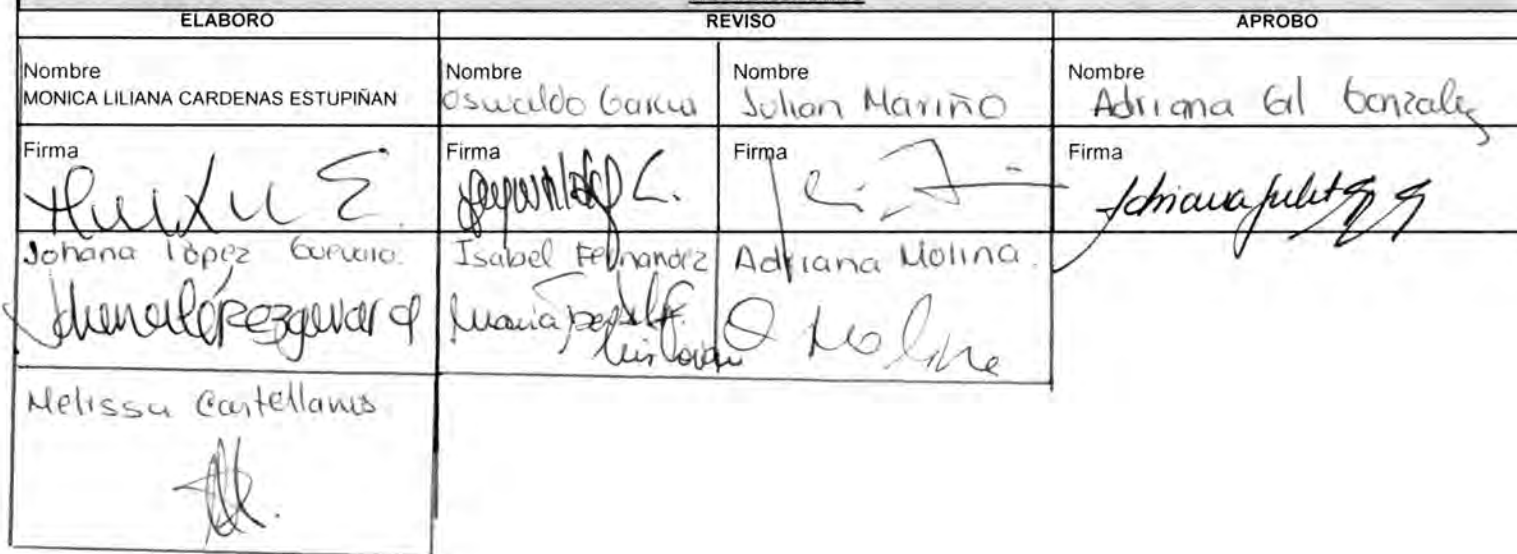 ELABORO
REVISO
APROBO
Nombre
MONICA LILIANA CARDENAS ESTUPIÑAN
Nombre
Oswaldo Garcia
Nombre
Julian Mariño
Nombre
Adriana Gil Gonzalez
Firma
Firma
Firma
Firma
Johana López Guevara.
Isabel Fernandez
Adriana Molina.
Johanalópezguevara
Molina
Melissa Castellanos